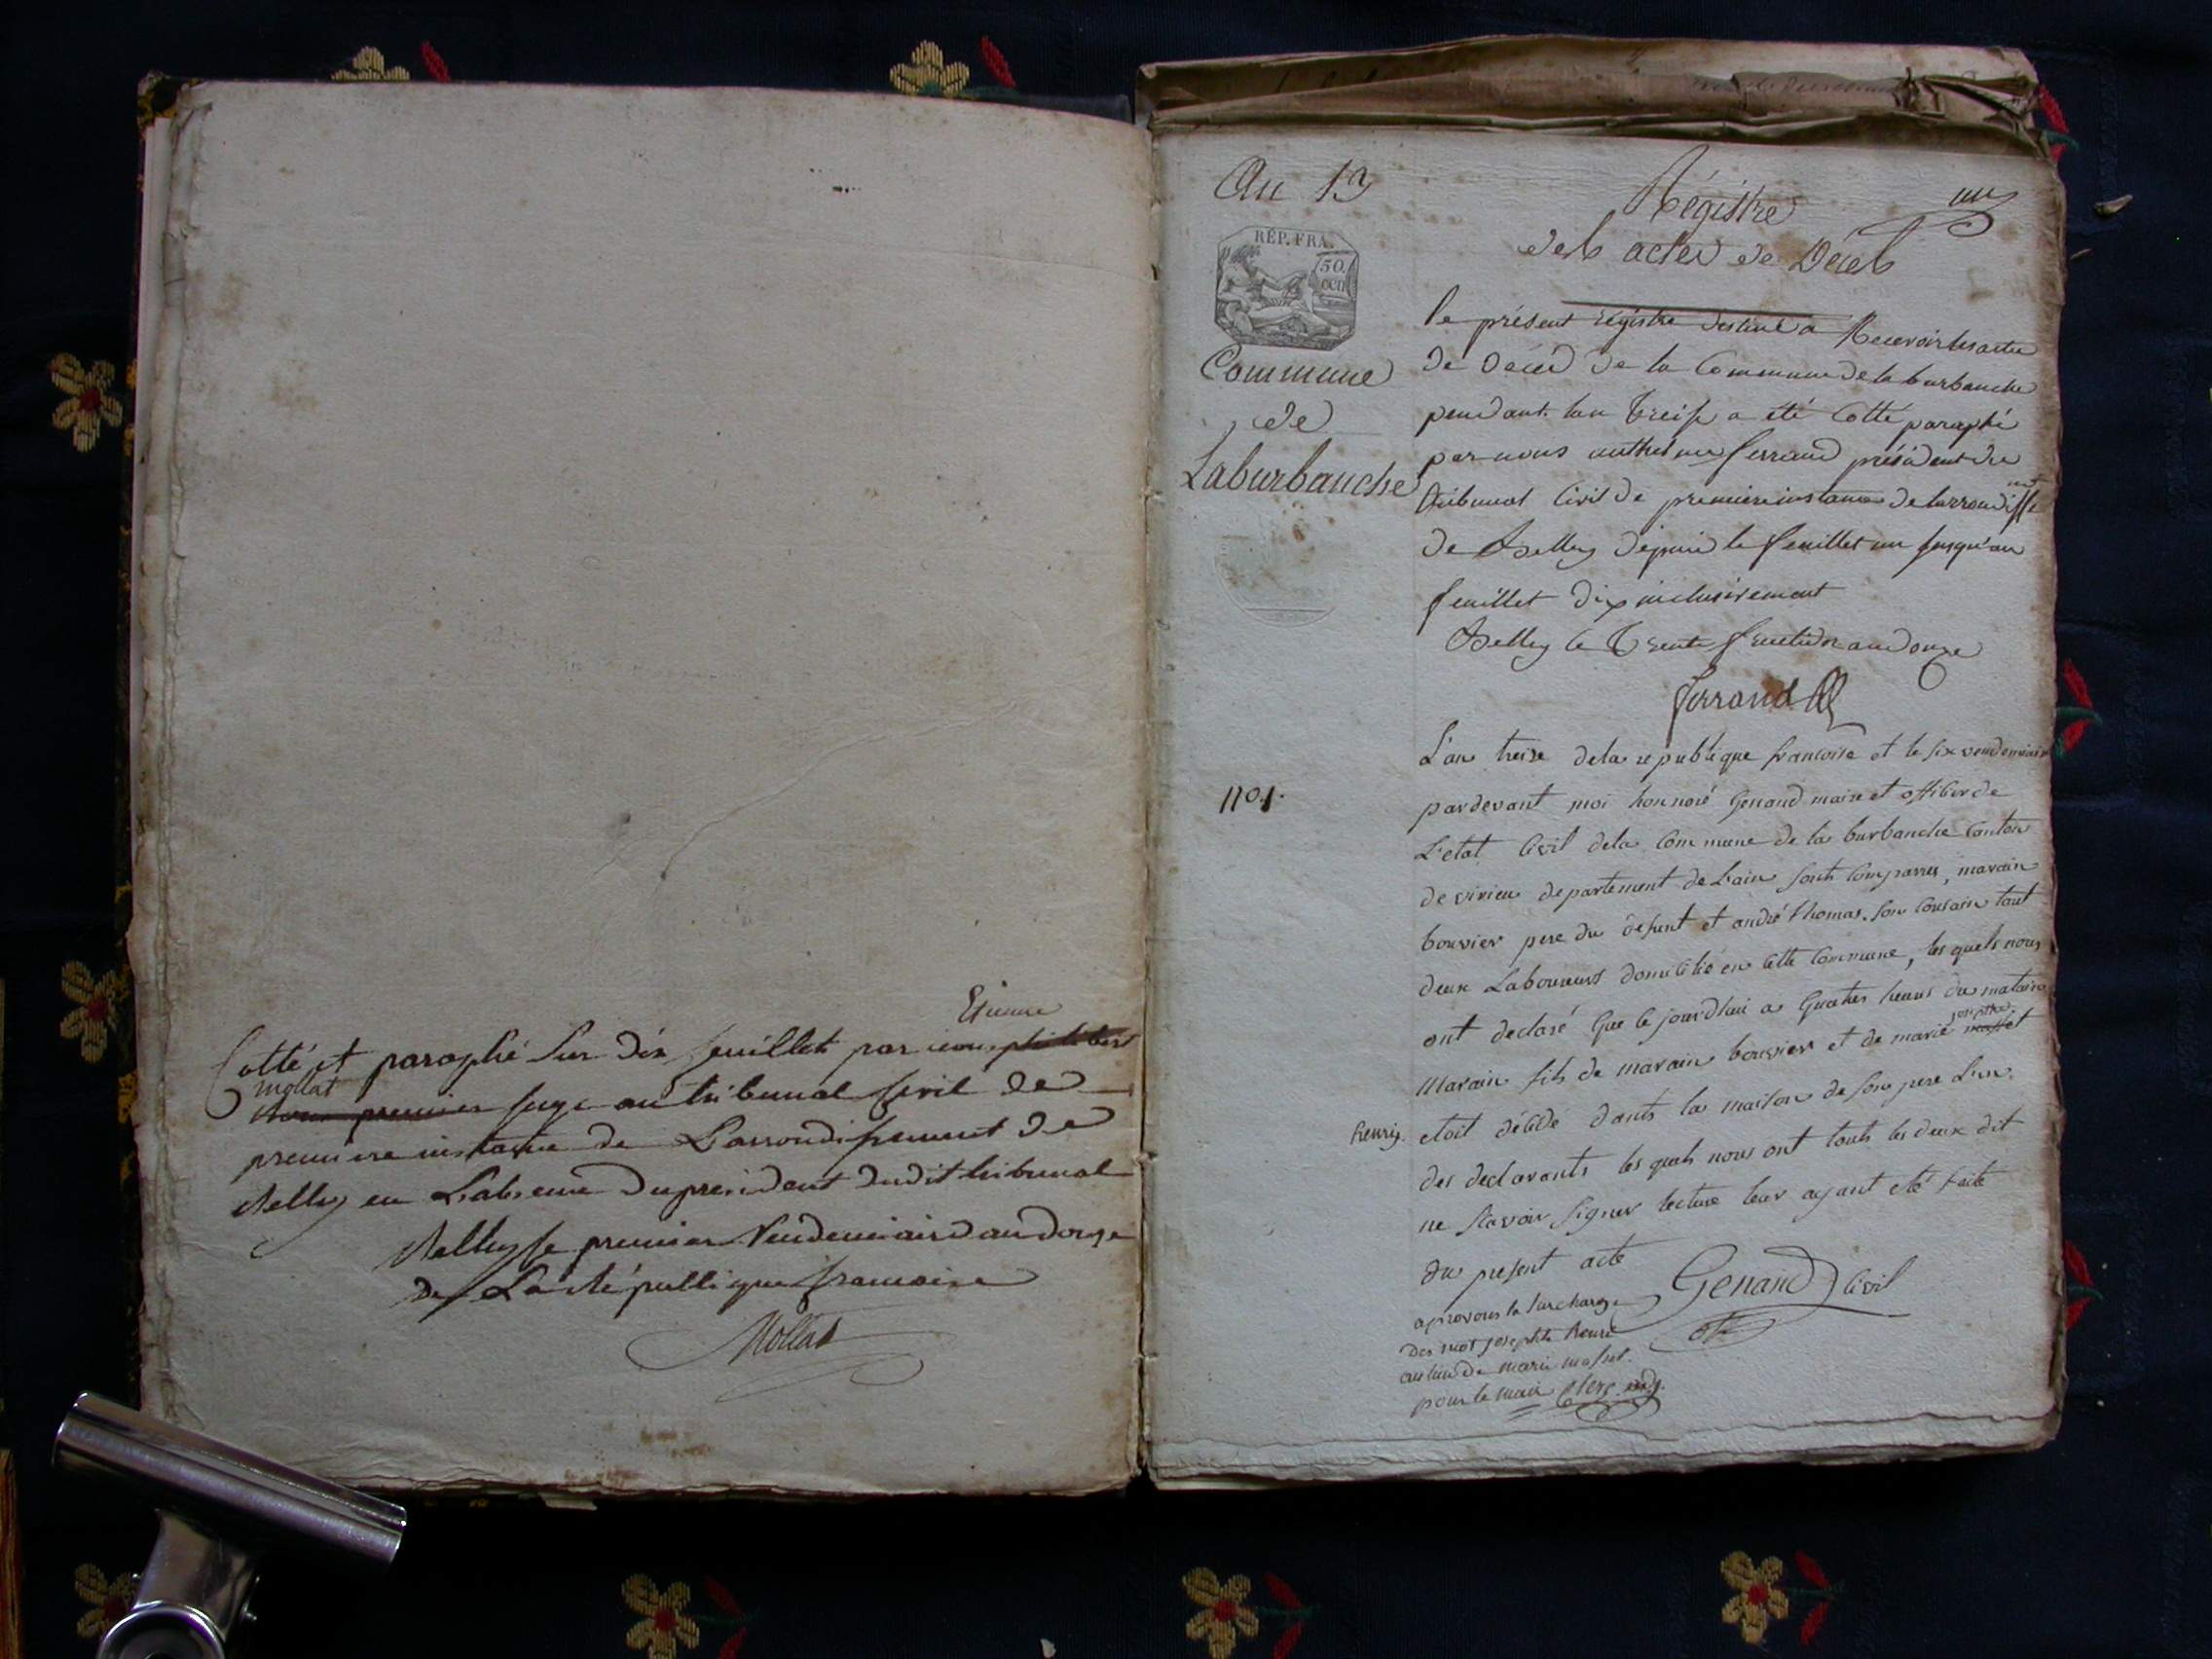 Etienne
Cotté et paraphé sur dix feuillets par nous philibert
mollat
premier juge au tribunal civil de
premiere instance de Larrondissement de
Belley en Labsence du président dudit tribunal
Belley le premier Vendemiaire an douze
de La République francaise
Mollat
An 13
un
Régistre
des actes de Décès
RÉP. FRA.
50.
CEN
Commune
de
Laburbanche
le présent registre destiné a Recevoir les actes
de décès de la Commune de la burbanche
pendant lan treise a été Cotté paraphé
par nous anthelme ferrand président du
tribunal Civil de premiere instance de larrondisse
ment
de Belley depuis le feuillet un jusqu'au
feuillet dix inclusivement
Belley le trente fructidor an douze
ferrand
L'an treize dela republique francoise et le six vendemiair
no. 1.
pardevant moi honnoré Genand maire et officier de
L'etat Civil dela Commune de la burbanche Canton
de virieu departement de Lain sonts Comparres, marain
bouvier pere du defunt et andré thomas son Cousain tout
deux Laboureurs domicilié en Cette Commune, les quels nous
ont declaré Que le jourdhui a Quatres heures du matain
josephte
Marain fils de marain bouvier et de marie masset
henry.
etoit décédé dants la maison de son pere L'un
des declarants les quels nous ont touts les deux dit
ne scavoir signer lecture leur ayant eté faite
du present acte
Genand Civil
aprovons la surcharge
des mot josephte henri
au lieu de marie masset.
pour le maire Clerc adj.